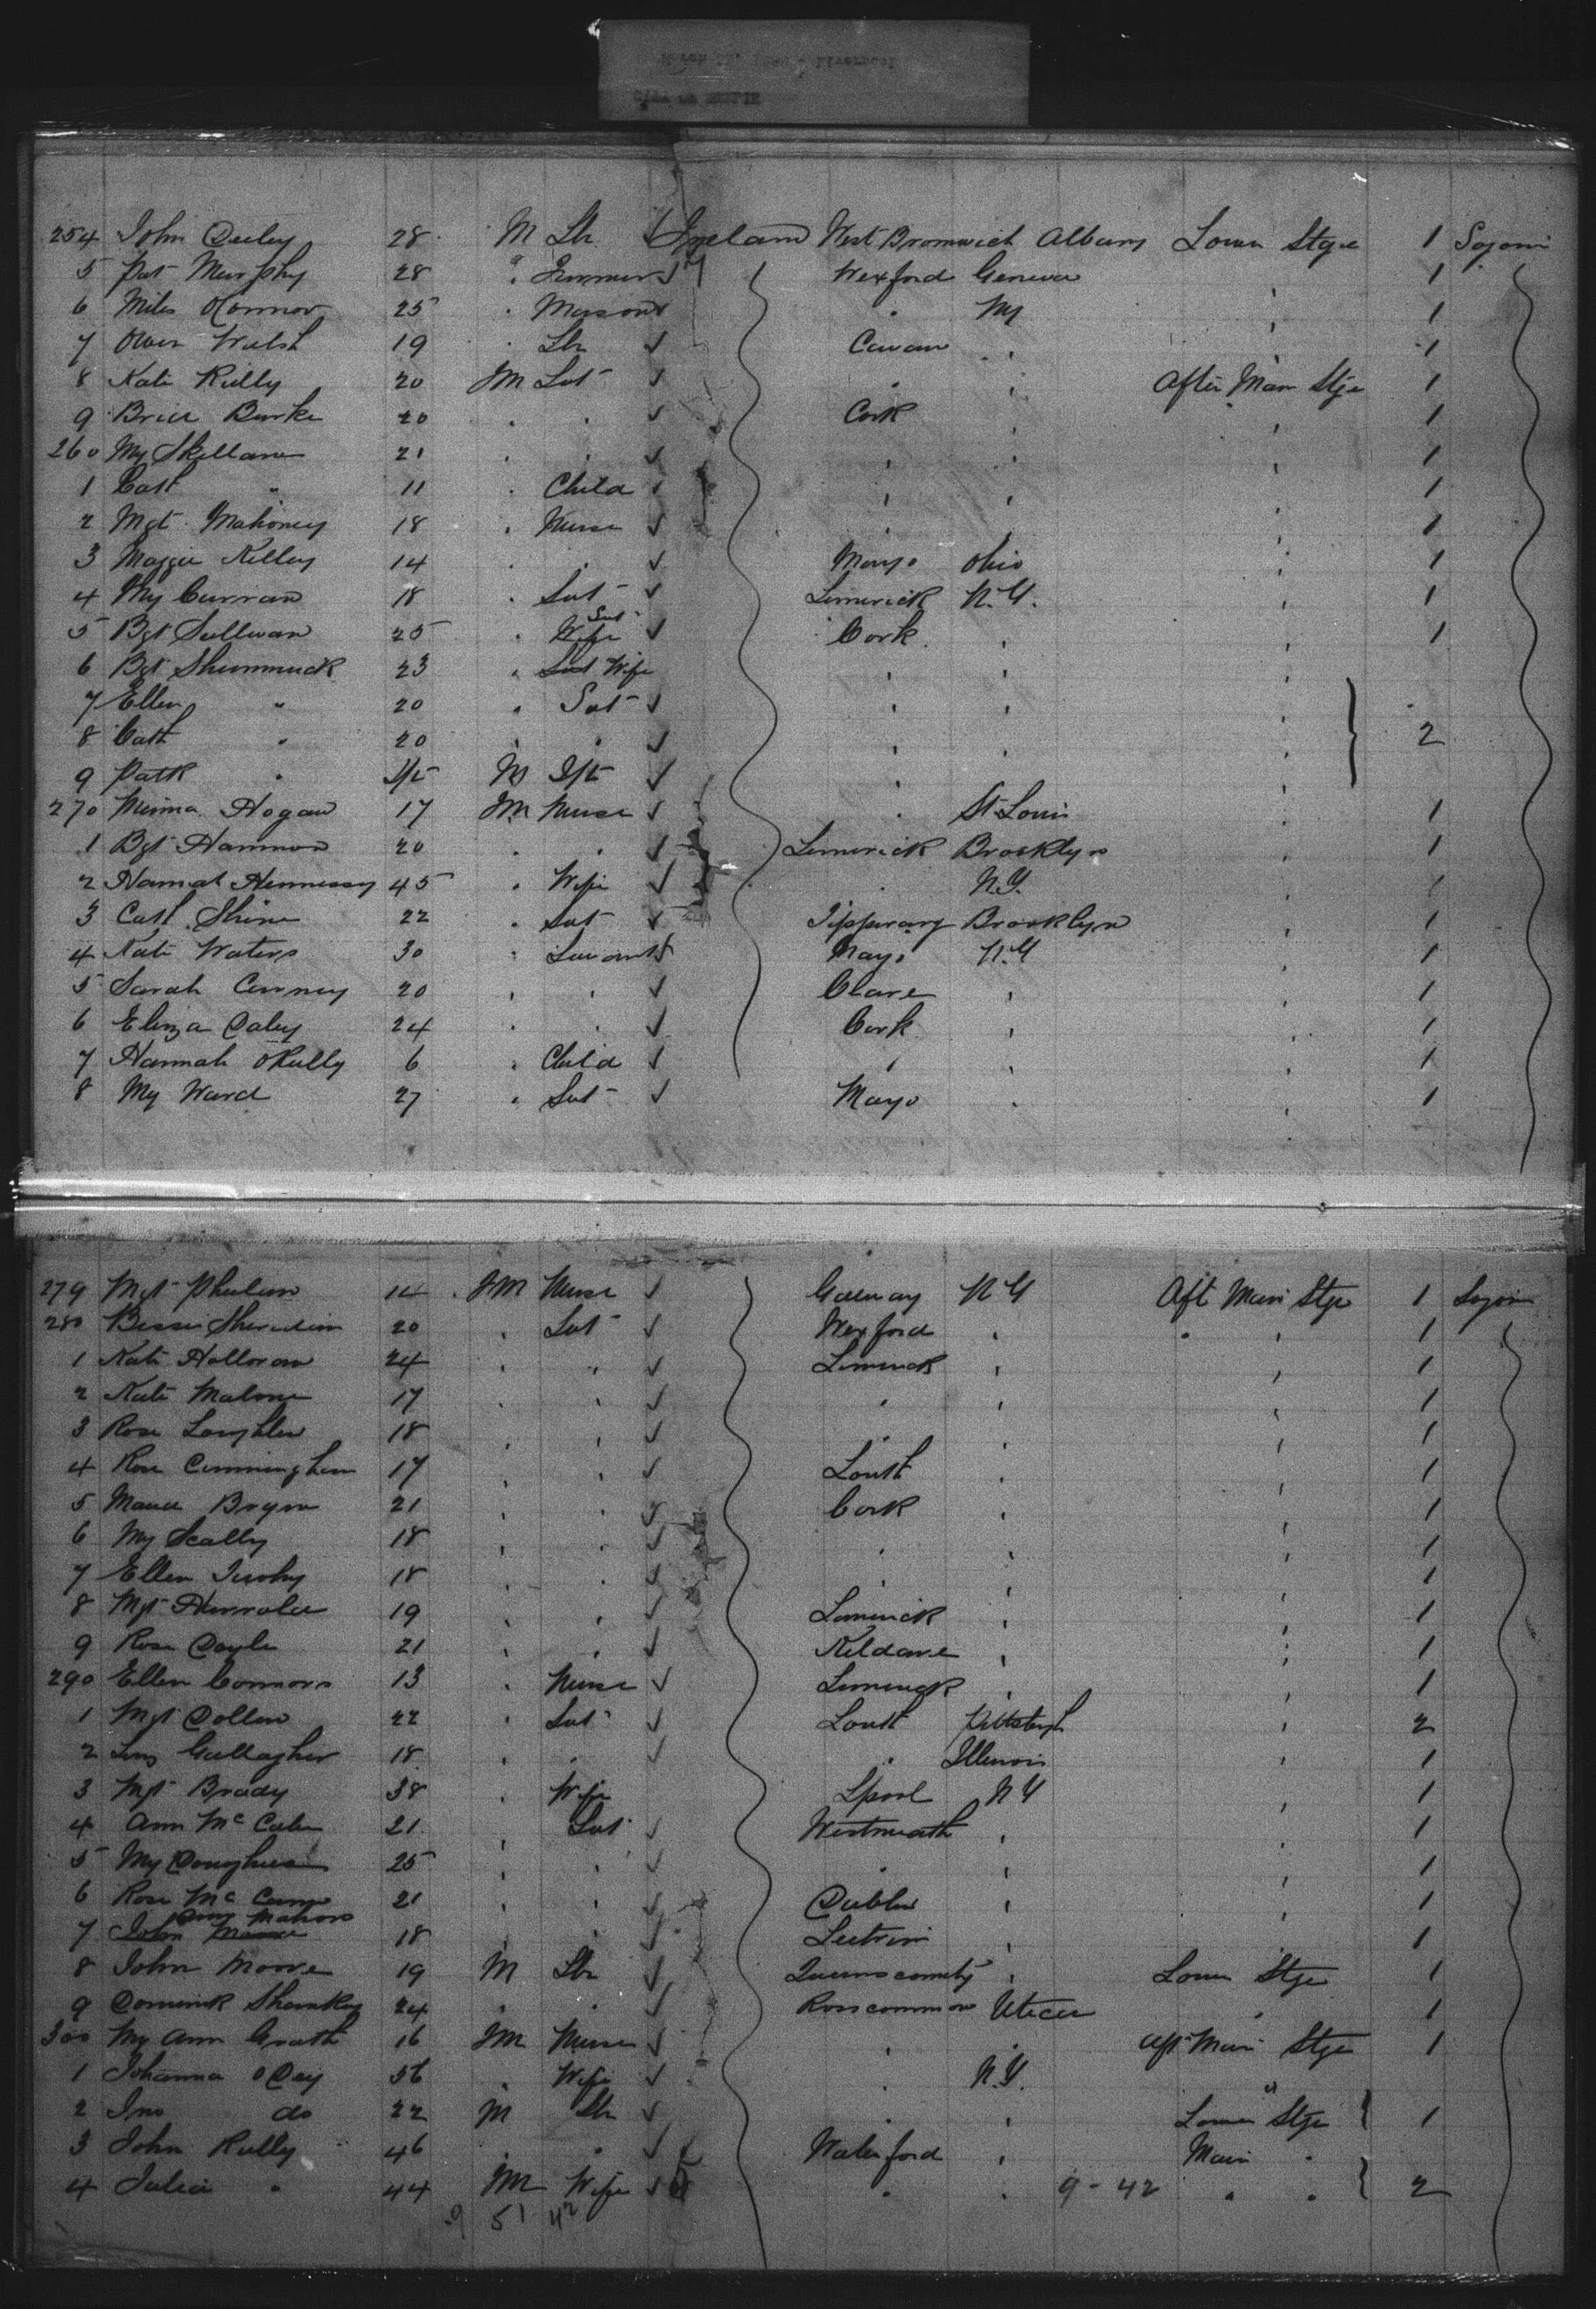 254 John Deeley 28 M Lbr Ireland West Bromwich Albany Lower Stge 1 Sojourn
5 Pat Murphy 28 " Farmer Wexford Geneva 1
6 Miles OConnor 25 " Mason " NY " 1
7 Owen Walsh 19 " Lbr Cavan " " 1
8 Kate Kelly 20 FM Svt " " After Main Stge 1
9 Burke 20 " " Cork " " 1
260 My Skellane 21 " " " " " 1
1 Cath " 11 " Child " " " 1
2 Mgt Mahoney 18 " Nurse " " " 1
3 Maggie Kelley 14 " " Mayo Ohio " 1
4 My Curran 18 " Svt Limerick N.Y. " 1
5 Bgt Sullivan 25 " Wife Svt Cork " " 1
6 Bgt 23 " Svt Wife " " "
7 Ellen " 20 " Svt " " "
8 Cath " 20 " " " " " 2
9 Patk " M Ift " "
270 Minna Hogan 17 FM Nurse " St Louis " 1
1 Bgt Hannon 20 " " Limerick Brooklyn " 1
2 Hannah Hennessy 45 " Wife " N.Y. " 1
3 Cath Shine 22 " Svt Tipperary Brooklyn " 1
4 Kate Waters 30 " Servant Mayo N.Y " 1
5 Sarah 20 " " Clare " " 1
6 Eliza Daley 24 " " Cork " " 1
7 Hannah OKelly 6 " Child " " " 1
8 My Ward 27 " Svt Mayo " " 1
279 Mgt Phelan 14 FM Nurse Galway N Y Aft Main Stge 1 Sojourn
280 Bessie Sheridan 20 " Svt Wexford " " " 1
1 Kate Halloran 24 " " Limerick " " 1
2 Kate Malone 17 " " " " " 1
3 Rose Loughlin 18 " " " " " 1
4 Rose Cunningham 17 " " Louth " " 1
5 21 " " Cork " " 1
6 My Scally 18 " " " " " 1
7 Ellen 18 " " " " " 1
8 Mgt 19 " " Limerick " " 1
9 Rose Doyle 21 " " Kildare " " 1
290 Ellen Connors 13 " Nurse Limerick " " 1
1 Mgt 22 " Svt Louth Pittsburgh " 2
2 Gallagher 18 " " " Illinois " 1
3 Mgt Brady 38 " Wife Lpool N Y " 1
4 Ann McCabe 21 " Svt Westmeath " " 1
5 My Donoghue 25 " " " " " 1
6 Rose Mc 21 " " Dublin " " 1
Mahon
7 John 18 " " Leitrim " " 1
8 John Moore 19 M Lbr Queens county " Lower Stge 1
9 Dominick Sharkey 24 " " Roscommon Utica " 1
300 My Ann Grath 16 FM Nurse " " Aft Main Stge 1
1 Johanna ODay 56 " Wife " N.Y. "
2 Jno do 22 M Lbr " " Lower Stge 1
3 John Kelly 46 " " Waterford " Main "
4 Julia " 44 FM Wife " " 9-42 " " 2
9 51 42